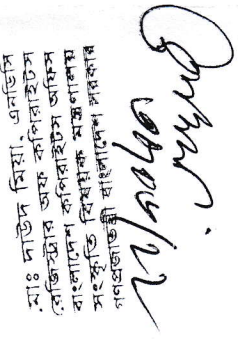 মোঃ দাউদ মিয়া, এনডিসি
রেজিস্ট্রার অফ কপিরাইটস
বাংলাদেশ কপিরাইট অফিস
সংস্কৃতি বিষয়ক মন্ত্রণালয়
গণপ্রজাতন্ত্রী বাংলাদেশ সরকার